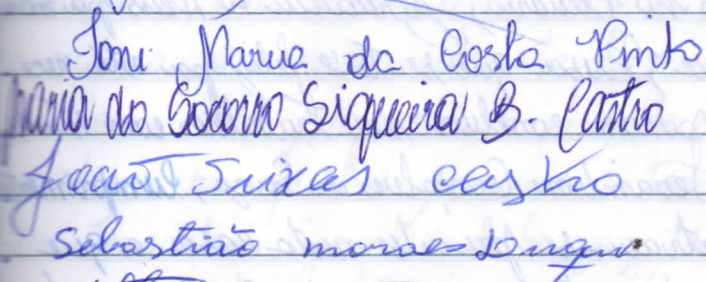 Ioni Maria da Costa Pinto
Maria do Socorro Siqueira B. Castro
João Seixas Castro
Sebastião moraes